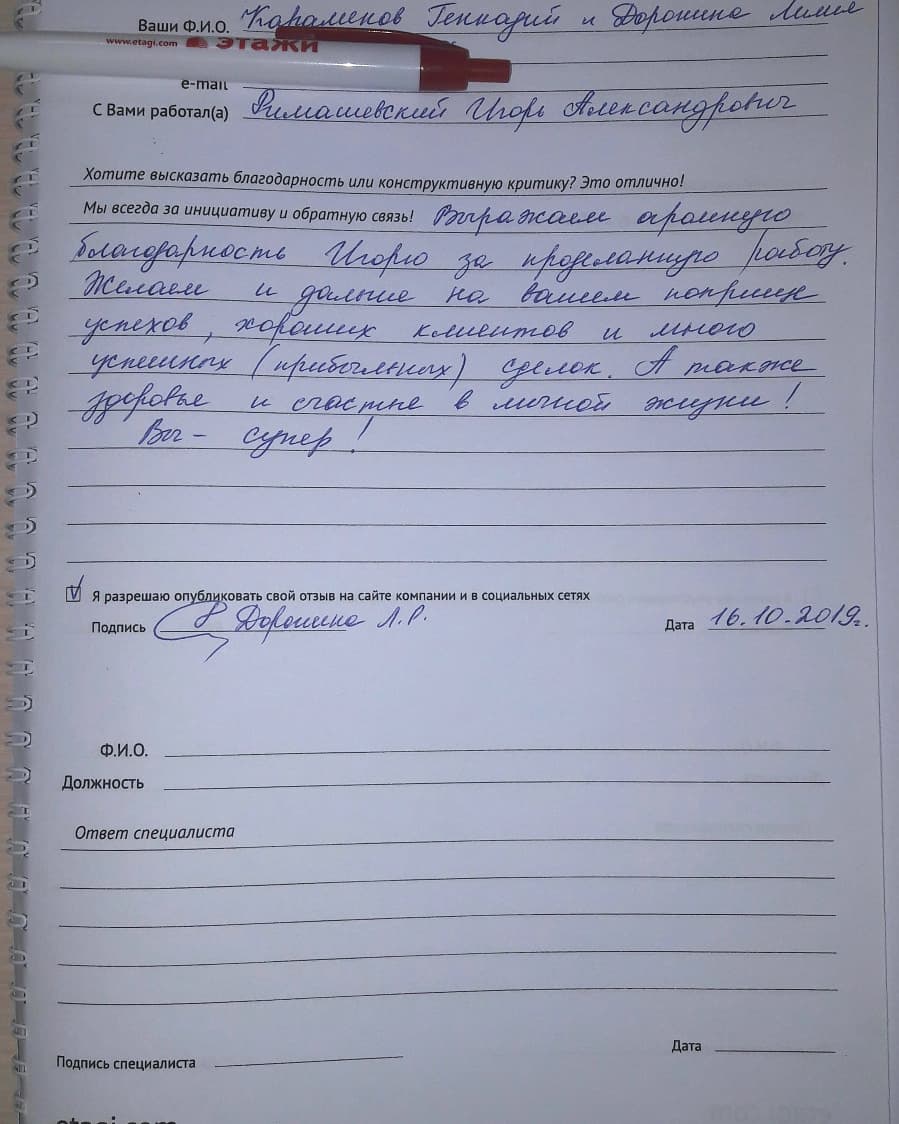 Ваши Ф.И.О. Караменов Геннадий и Доронина Лилия
www.etagi.com этажи
e-mail
С Вами работал(а) Римашевский Игорь Александрович
Хотите высказать благодарность или конструктивную критику? Это отлично!
Мы всегда за инициативу и обратную связь! Выражаем огромную
благодарность Игорю за проделанную работу.
Желаем и дальше на вашем поприще
успехов, хороших клиентов и много
успешных (прибыльных) сделок. А также
здоровье и счастье в личной жизни!
Вы - супер!
Я разрешаю опубликовать свой отзыв на сайте компании и в социальных сетях
Подпись Доронина Л.Р. Дата 16.10.2019г.
Ф.И.О.
Должность
Ответ специалиста
Подпись специалиста Дата
etagi.com